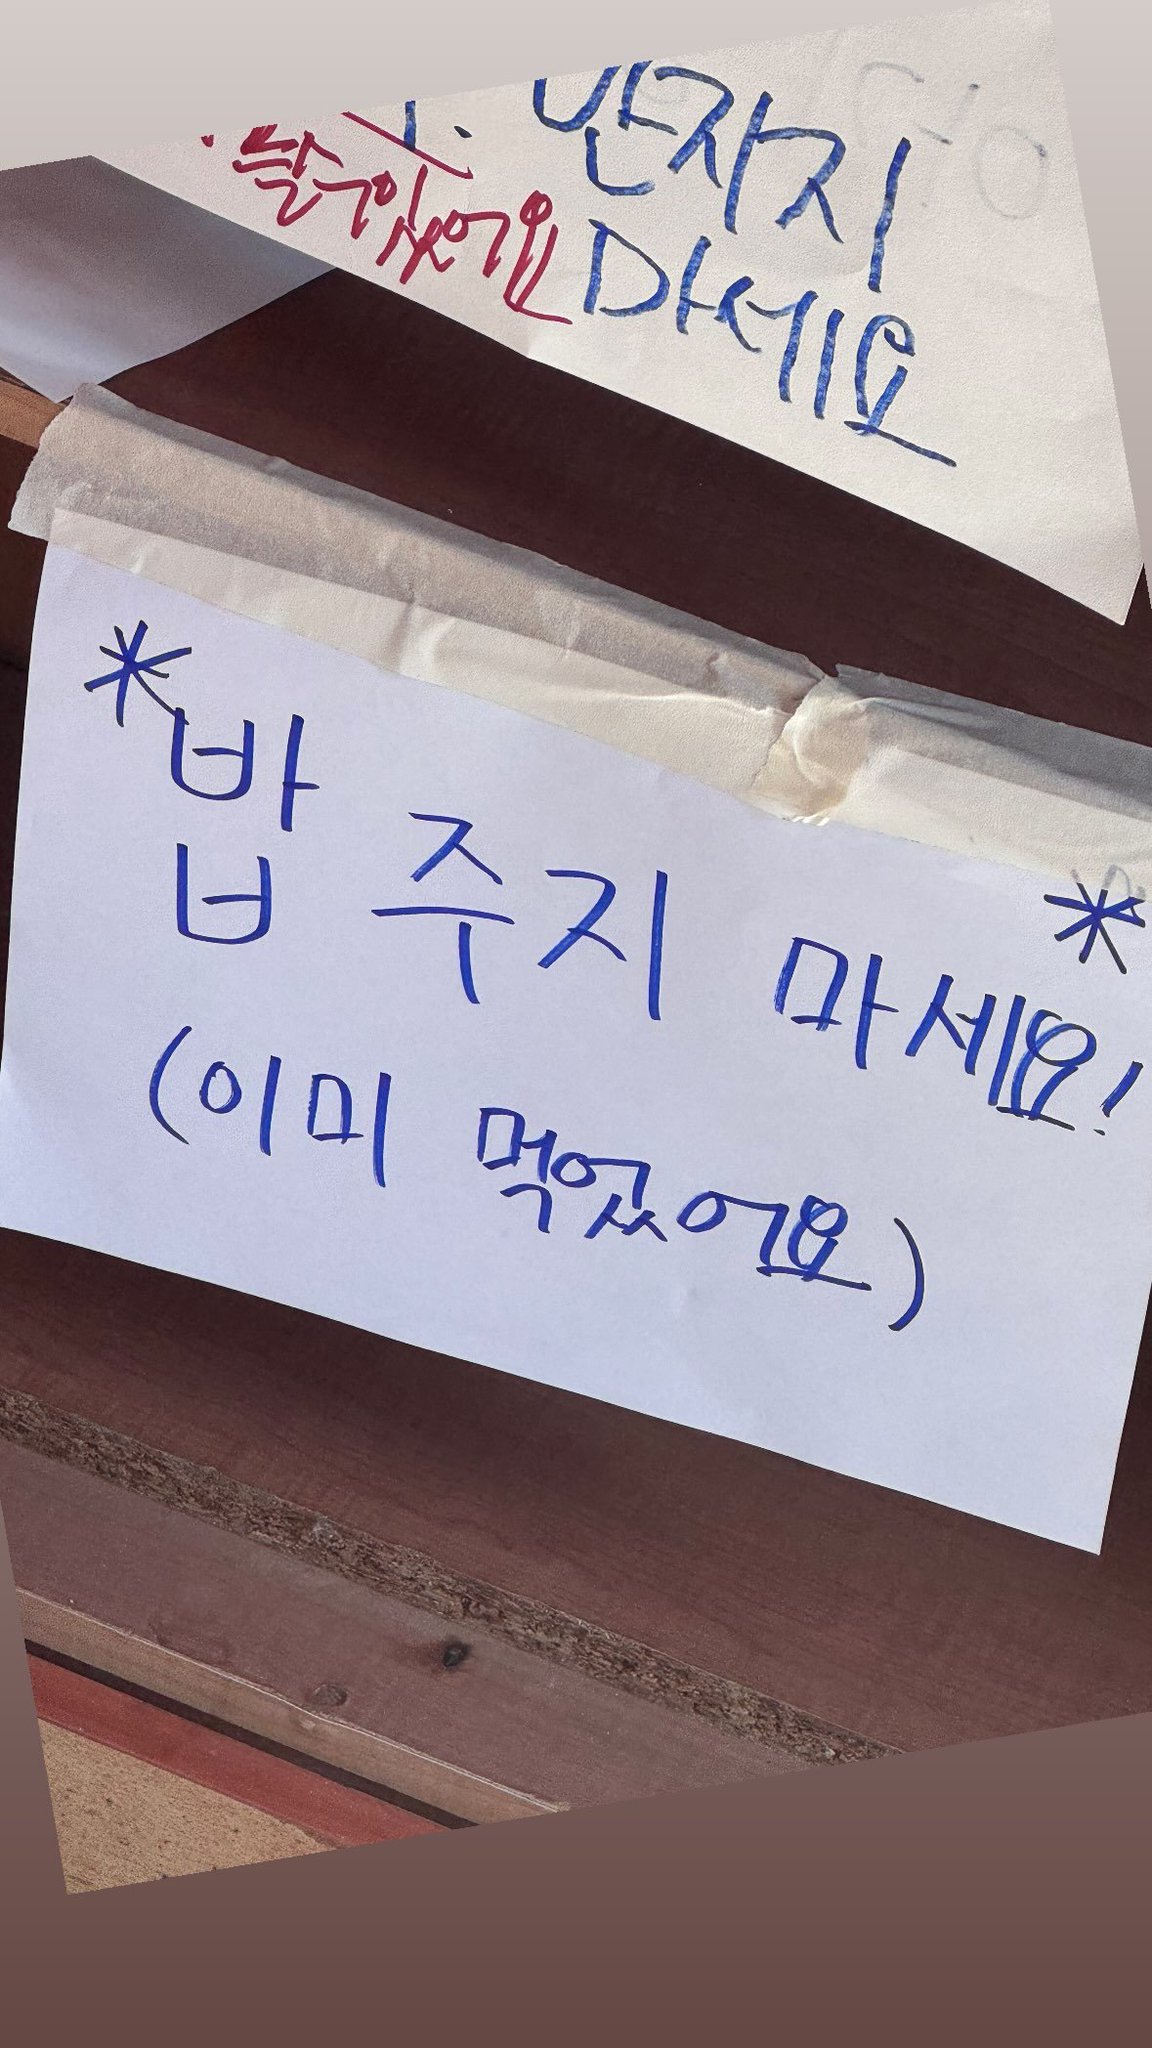 만지지
마세요
수 있어요
*밥 주지 마세요! *
(이미 먹었어요)